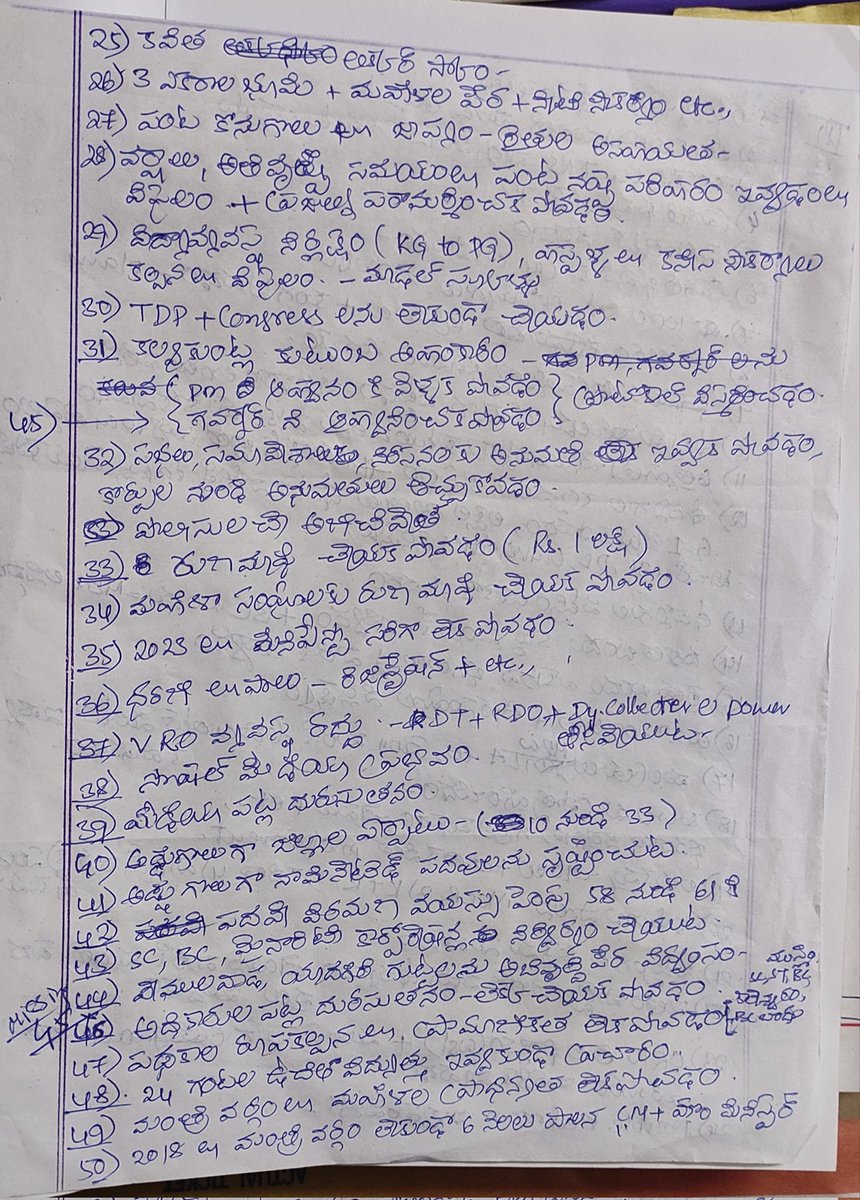 25) కవిత లిక్కర్ స్కాం -
26) 3 ఎకరాల భూమి + మహిళల పేర + నీటి సౌకర్యం etc.,
27) పంట కొనుగోలు లు జాప్యం - రైతుల అసంతృప్తి -
28) వర్షాలు, అతివృష్టి సమయంలు పంట నష్ట పరిహారం ఇవ్వడంలు
విఫలం + ప్రజల్ని పరామర్శించక పోవడం.
29) విద్యావ్యవస్థ నిర్లక్ష్యం (KG to PG), హాస్టళ్ళ లు కనీస సౌకర్యాలు
కల్పనలు విఫలం. - మోడల్ స్కూళ్ళు
30) TDP + Congress లను లేకుండా చేయడం.
31) కల్వకుంట్ల కుటుంబ అహంకారం - pm, గవర్నర్ లను
( pm ఆహ్వానం కి వెళ్ళక పోవడం } ప్రోటోకాల్ విస్మరించడం.
45) → { గవర్నర్ ని ఆహ్వానించకపోవడం }
32) సభలు, సమావేశాలకు, నిరసనలకు అనుమతి ఇవ్వక పోవడం,
కోర్టుల నుండి అనుమతులు తెచ్చుకోవడం.
పోలీసులచే అణచివేత.
33) రుణమాఫీ చేయక పోవడం (Rs. 1 లక్ష)
34) మహిళా సంఘాలకు రుణ మాఫీ చేయక పోవడం.
35) 2023 లు మేనిఫెస్టో సరిగా లేక పోవడం.
36) ధరణి లోపాలు - రిజిస్ట్రేషన్ + etc.,
37) VRO వ్యవస్థ రద్దు. - DT + RDO + Dy. Collector ల power
తీసివేయుట.
38) సోషల్ మీడియా ప్రభావం.
39) మీడియా పట్ల దురుసుతనం.
40) అడ్డగోలుగా జిల్లాల ఏర్పాటు - (10 నుండి 33)
41) అడ్డగోలుగా నామినేటెడ్ పదవులను సృష్టించుట.
42) పదవీ విరమణ వయస్సు పెంపు 58 నుండి 61 కి
43) SC, BC, మైనారిటీ కార్పోరేషన్లను నిర్వీర్యం చేయుట.
44) వేములవాడ, యాదగిరి గుట్టలను అభివృద్ధి పేర విధ్వంసం -
46) అధికారుల పట్ల దురుసుతనం - లెక్క చేయక పోవడం.
47) పథకాల రూపకల్పన లు ప్రామాణికత లేకపోవడం
48). 24 గంటల ఉచిత విద్యుత్తు ఇవ్వకుండా ప్రచారం.
49) మంత్రి వర్గంలు మహిళల ప్రాధాన్యత లేకపోవడం.
50) 2018 లు మంత్రి వర్గం లేకుండా 6 నెలలు పాలన CM + హోం మినిస్టర్